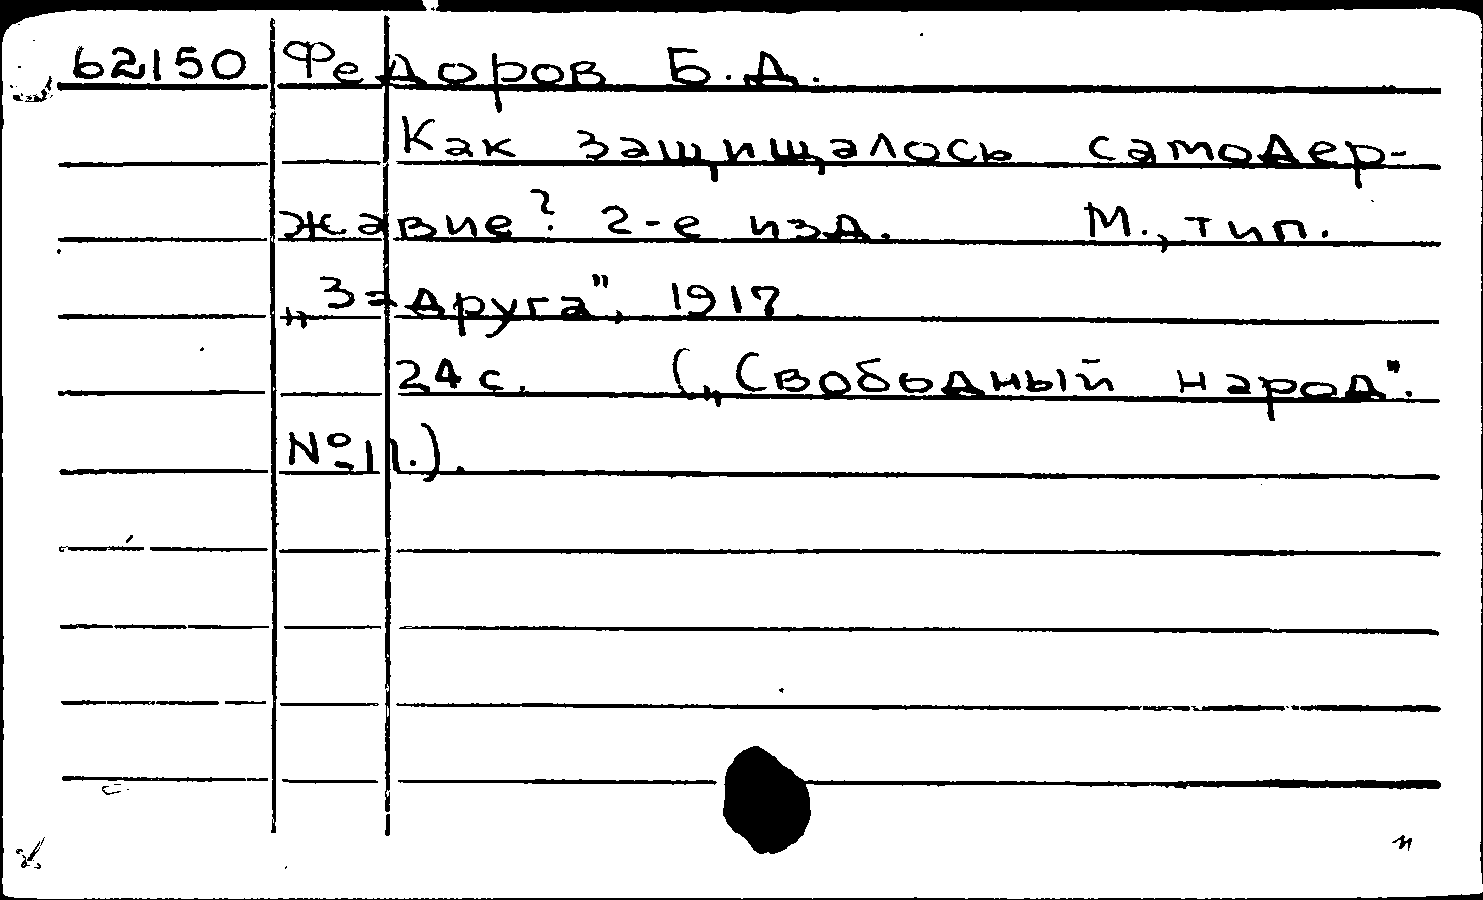 62150 Федоров Б.Д.
Как защищалось самодер-
жавие? 2-е изд. М., тип.
„Задруга", 1917
24 с. („Свободный народ".
№ 11.).